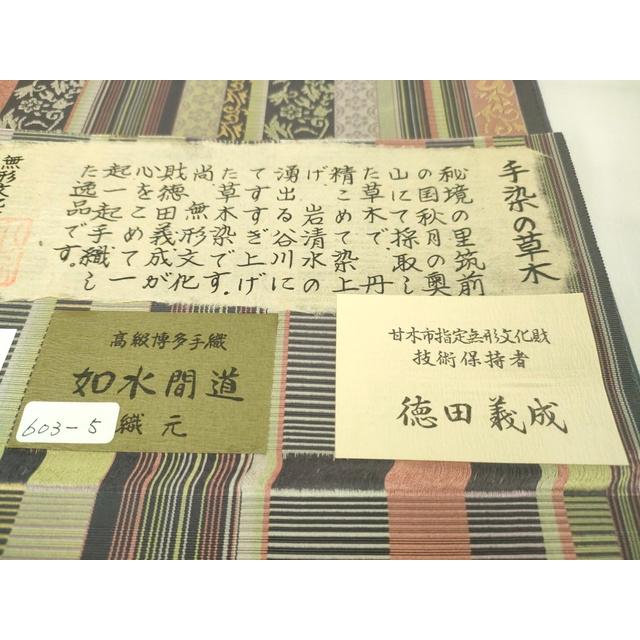 手染の草木
秘境の里筑前
の国秋月の奥
山にて採取し
た草木で 丹
精こめて染上
げ 岩清水の
湧出る谷川に
てすすぎ上げ
た草木染です。
尚 無形文化
財徳田義成が
心をこめて一
起一起手織し
た逸品です。
無形文化
高級博多手織
如水間道
織元
603-5
甘木市指定無形文化財
技術保持者
徳田義成